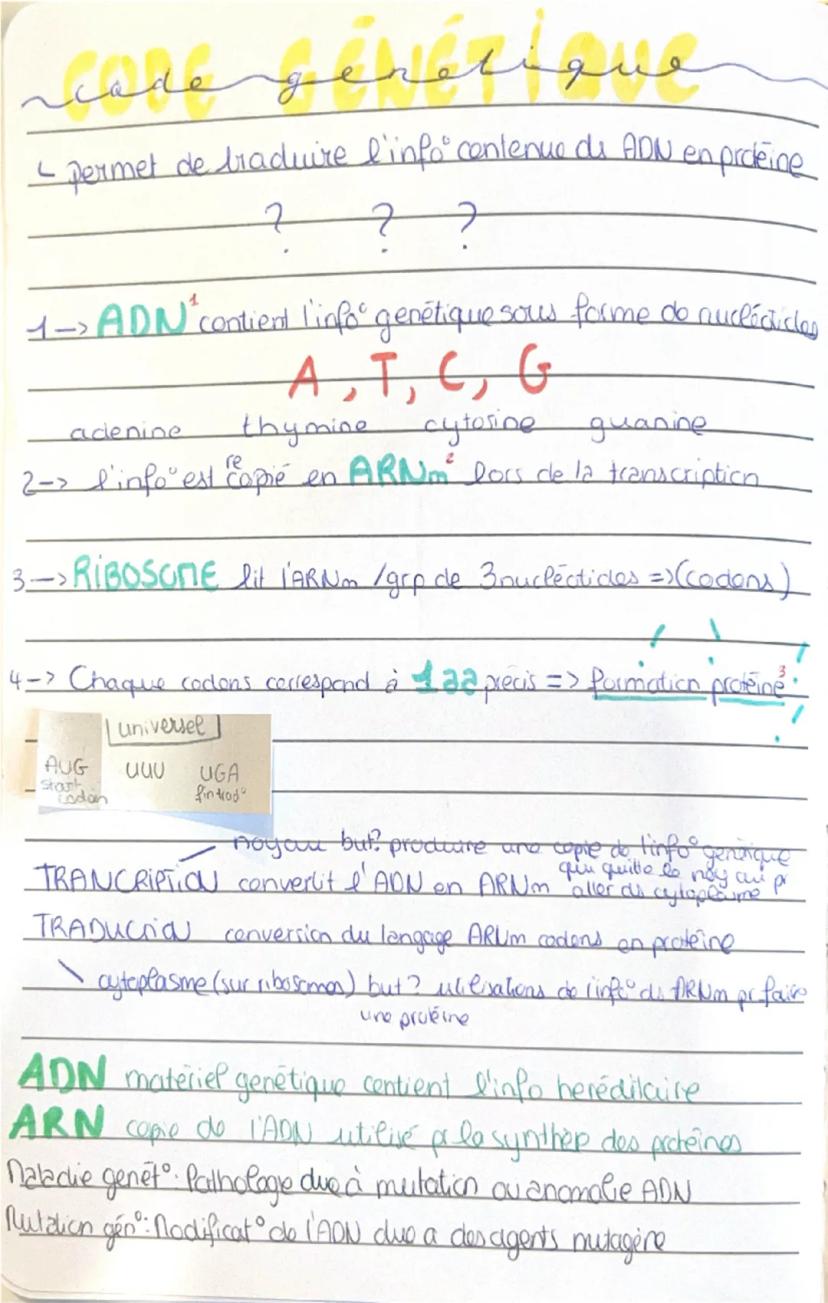 CODE GÉNÉTIQUE
code genetique
↳ permet de traduire l'info° contenue ds ADN en protéine
? ? ?
1 -> ADN¹ contient l'info° genétique sous forme de nucléotides
A, T, C, G
adenine thymine cytosine guanine
2 -> l'info° est recopié en ARNm² lors de la transcription
3 -> RIBOSOME lit l'ARNm /grp de 3 nucléotides => (codons)
4 -> Chaque codons correspond à 1 aa précis => formation protéine³
universel
AUG UUU UGA
start codon fin trad°
noyau but? produire une copie de l'info° genétique
qui quitte le noy au pr
TRANCRIPTION convertit l'ADN en ARNm aller ds cytoplasme
TRADUCTION conversion du langage ARNm codons en protéine
cytoplasme (sur ribosomes) but? utilisations de l'info° ds ARNm pr faire
une protéine
ADN matériel genétique contient l'info heréditaire
ARN copie de l'ADN utilisé pr la synthèse des protéines
Maladie genét°: Pathologie due à mutation ou anomalie ADN
Mutation gén°: Modificat° de l'ADN due a des agents mutagène